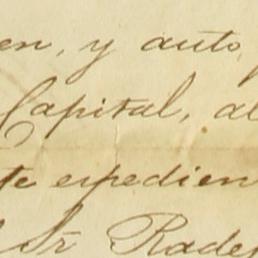 en, y auto
Capital, al
te espedien
Sr Rades